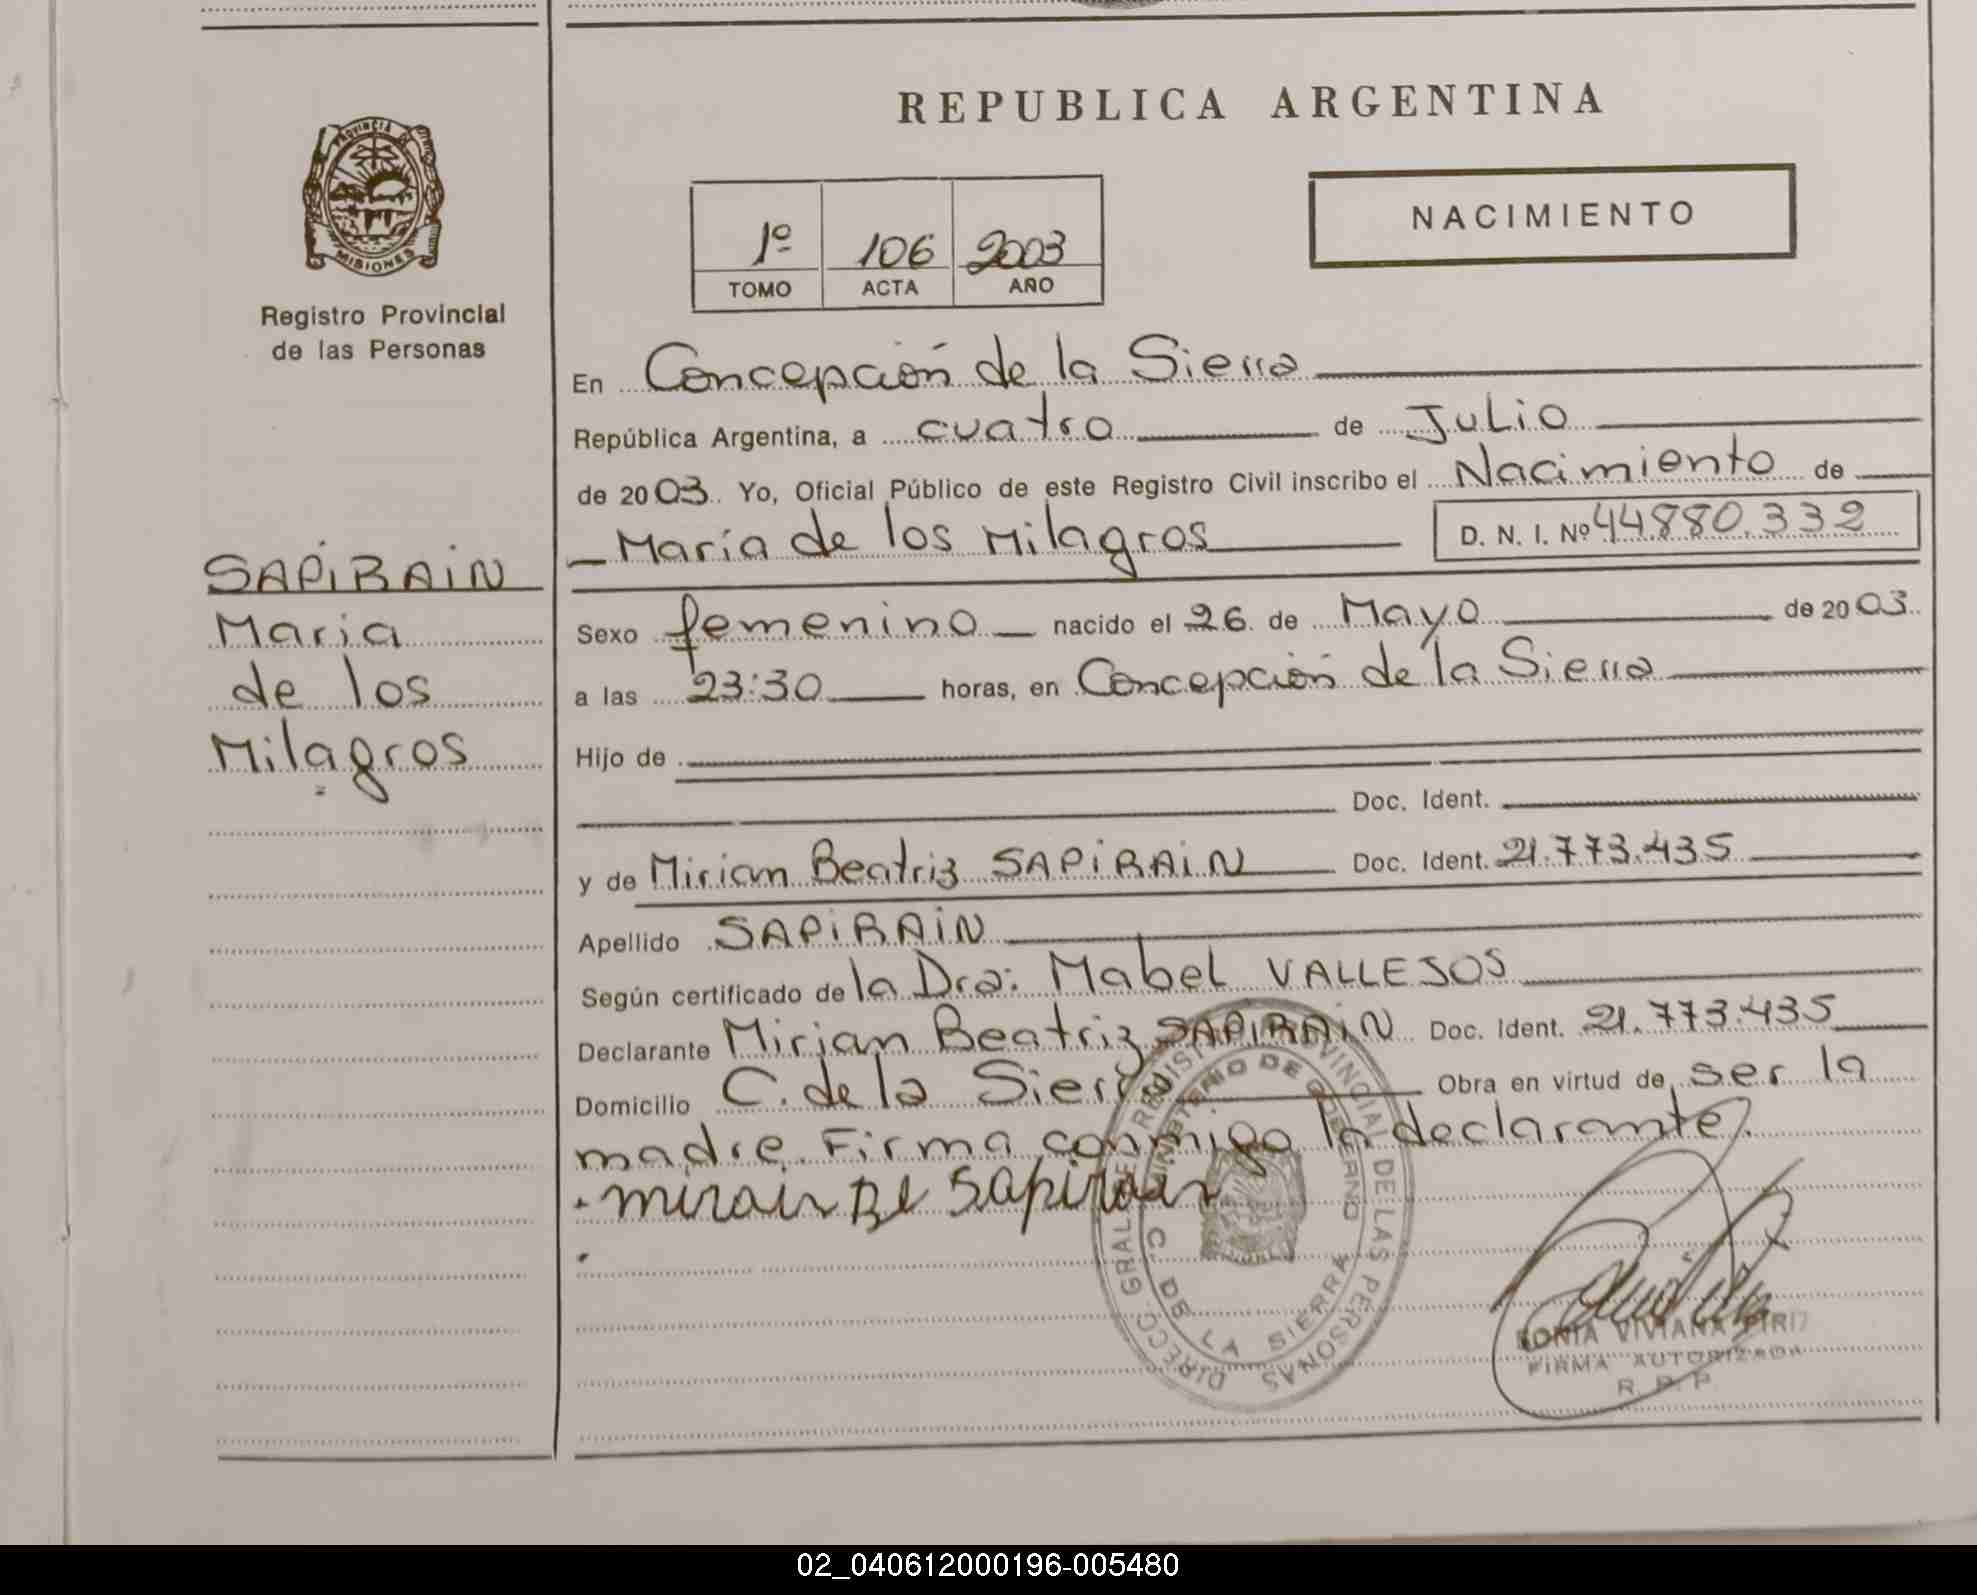 REPUBLICA ARGENTINA
PROVINCIA DE
MISIONES
Registro Provincial
de las Personas
1º 106 2003
TOMO ACTA AÑO
NACIMIENTO
SAPiRAiN
Maria
de los
Milagros
En Concepción de la Sierra
República Argentina, a cuatro de Julio
de 2003. Yo, Oficial Público de este Registro Civil inscribo el Nacimiento de
María de los Milagros D. N. I. Nº 44880.332
Sexo femenino nacido el 26 de Mayo de 2003
a las 23:30 horas, en Concepción de la Sierra
Hijo de
Doc. Ident.
y de Mirian Beatriz SAPiRAiN Doc. Ident. 21.773.435
Apellido SAPiRAiN
Según certificado de la Dra: Mabel VALLEJOS
Declarante Mirian Beatriz SAPiRAiN Doc. Ident. 21.773.435
Domicilio C. de la Sierra Obra en virtud de ser la
madre. Firma conmigo la declarante.
DIRECC. GRAL. DE REGISTRO PROVINCIAL DE LAS PERSONAS
MINISTERIO DE GOBERNO
C. DE LA SIERRA
SONIA VIVIANA
FIRMA AUTORIZADA
R. P. P.
02_040612000196-005480